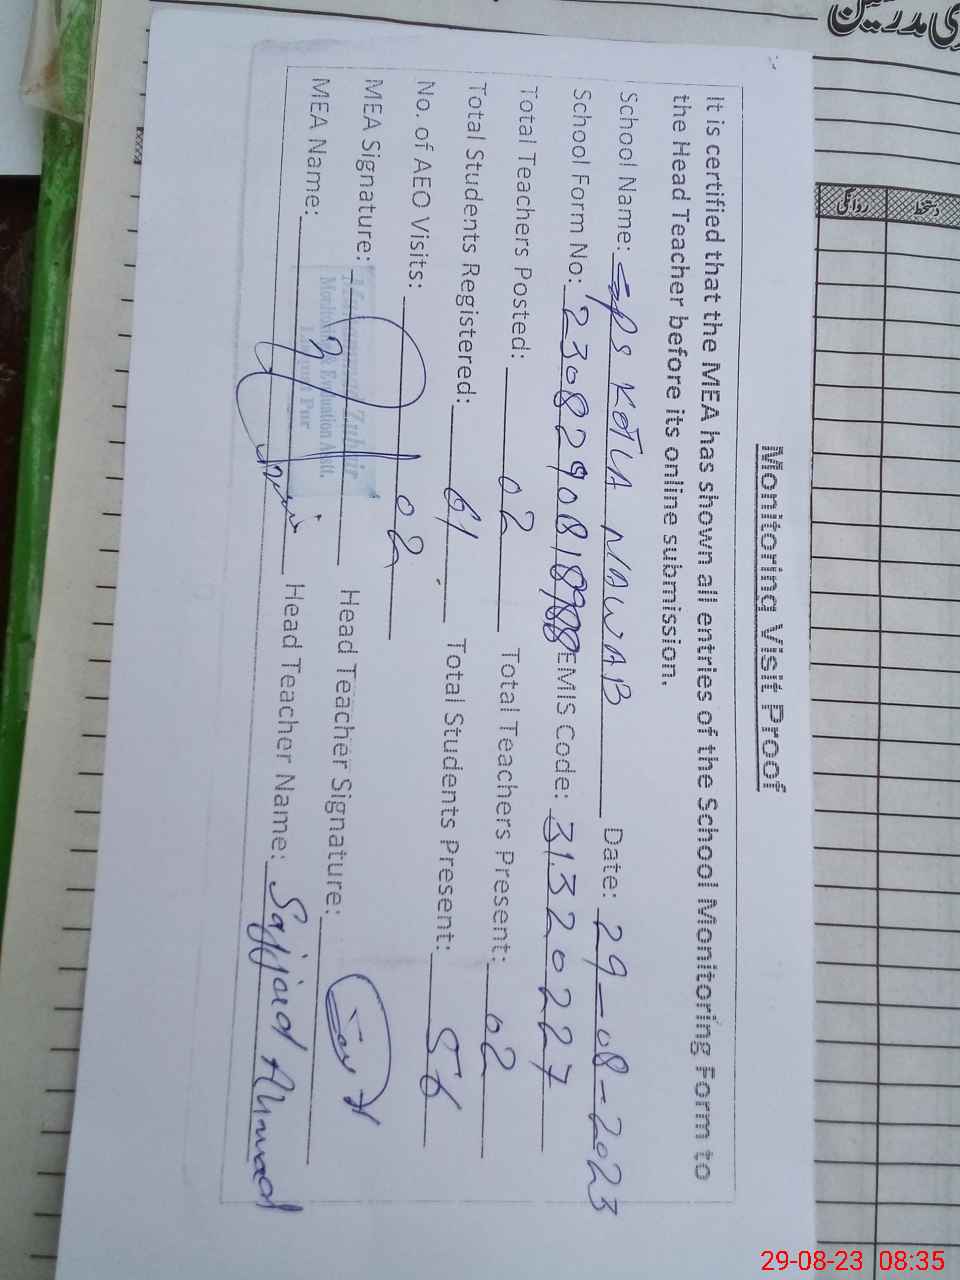 ی مدرسین
دستخط روانگی
Monitoring Visit Proof
It is certified that the MEA has shown all entries of the School Monitoring Form to
the Head Teacher before its online submission.
School Name: GPS KOTLA NAWAB Date: 29-08-2023
School Form No: EMIS Code: 31320227
Total Teachers Posted: 02 Total Teachers Present: 02
Total Students Registered: 61 Total Students Present: 56
No. of AEO Visits: 02
MEA Signature: Head Teacher Signature:
MEA Name: Head Teacher Name: Sajjad Ahmad
Muhammad Zubair
Monitoring & Evaluation Astt.
29-08-23 08:35